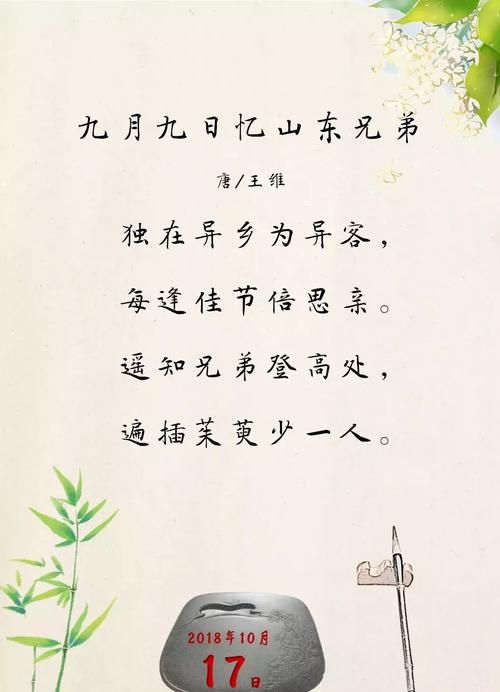 九月九日忆山东兄弟
唐/王维
独在异乡为异客，
每逢佳节倍思亲。
遥知兄弟登高处，
遍插茱萸少一人。
2018年10月
17日